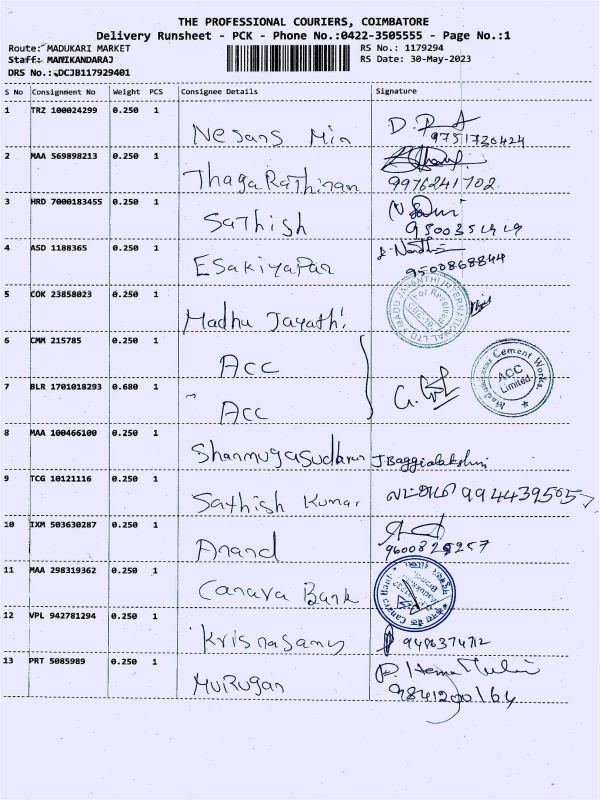 THE PROFESSIONAL COURIERS, COIMBATORE
Delivery Runsheet - PCK - Phone No.:0422-3505555 - Page No.:1
Route: MADUKARI MARKET RS No.: 1179294
Staff: MANIKANDARAJ RS Date: 30-May-2023
DRS No.: DCJB117929401
S No Consignment No Weight PCS Consignee Details Signature
1 TRZ 100024299 0.250 1
Nesans Min 9751730424
2 MAA 569898213 0.250 1
ThagaRathinan 9976241702
3 HRD 7000183455 0.250 1
Sathish
4 ASD 1188365 0.250 1
Esakiyapan 9500868844
5 COK 23858023 0.250 1
Madhu Jayathi
6 CMM 215785 0.250 1
Acc
7 BLR 1701018293 0.680 1
Acc
Madukkarai Cement Works
ACC
Limited
8 MAA 100466100 0.250 1
Shanmugasudharan J Baggialakshmi
9 TCG 10121116 0.250 1
Sathish Kumar
10 IXM 503630287 0.250 1
Anand
11 MAA 298319362 0.250 1
Canara Bank
12 VPL 942781294 0.250 1
Krisnasamy
13 PRT 5085989 0.250 1
Murugan 9841200164